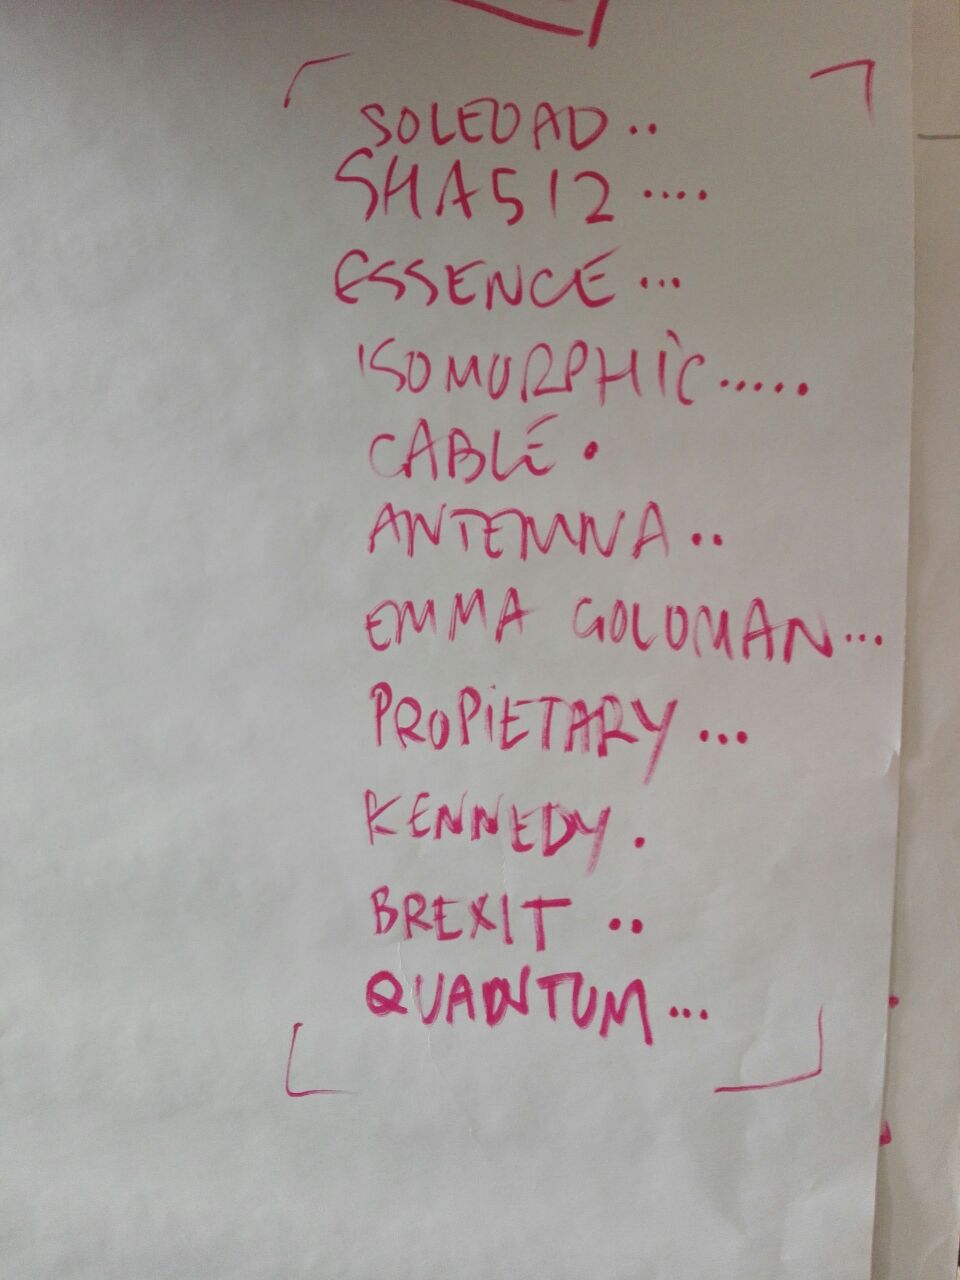 SOLEDAD ..
SHA512 ....
ESSENCE ...
ISOMORPHIC .....
CABLE .
ANTENNA ..
EMMA GOLDMAN ...
PROPIETARY ...
KENNEDY .
BREXIT ..
QUANTUM ...